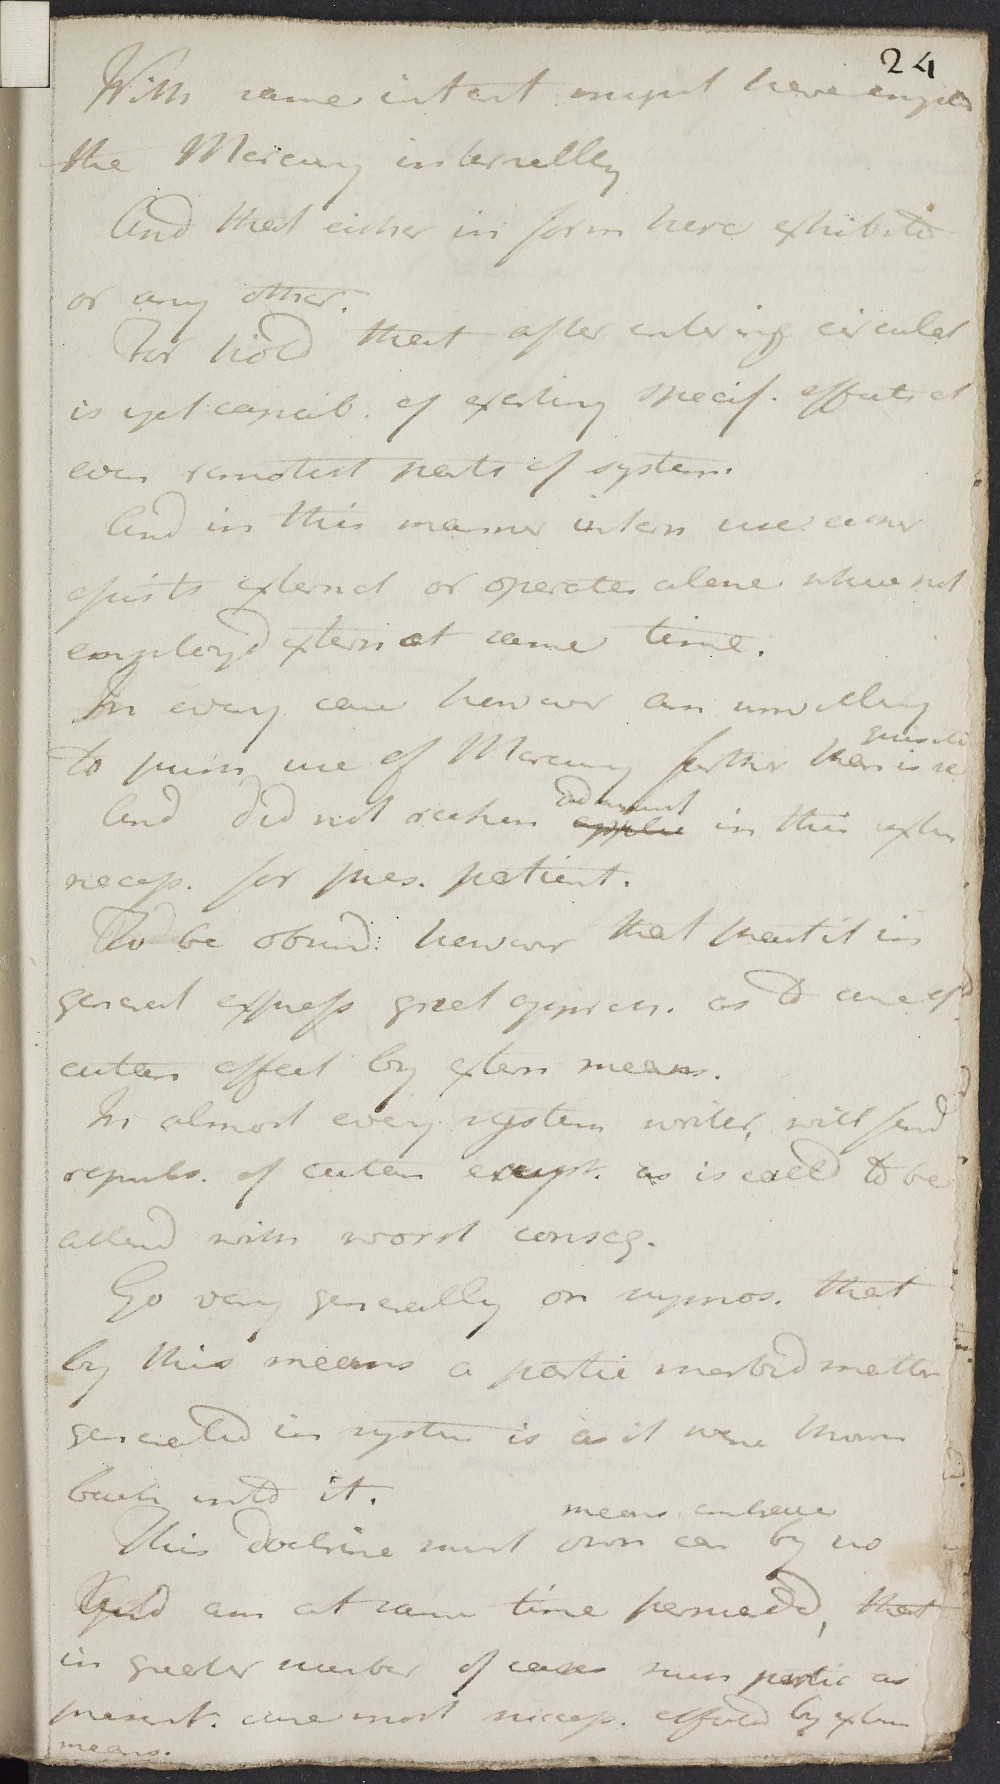 24
With same intent might have employd
the Mercury internally
And that either in form here exhibited
or any other.
For hold that after entering circulat
is yet capab. of exerting specif. effects at
even remotest parts of system.
And in this manner intern use either
assists external or operates alone when not
employd extern at same time.
In every case however am unwilling
to push use of Mercury further than is re
quisite
And did not reckon administ in this exten
necess. for pres. patient.
To be obsevd: however that practit in
general express great apprehen. as to cure of
cutan affect by extern means.
In almost every system writer, will find
repuls. of cutan erupt. as is calld to be
attend with worst conseq.
Go very generally on suppos. that
by this means a partic morbid matter
generated in system is as it were thrown
back into it.
This doctrine must own can by no
means embrace
And am at same time persuadd, that
in greater number of cases such partic as
present. cure most success. effectd by extern
means.